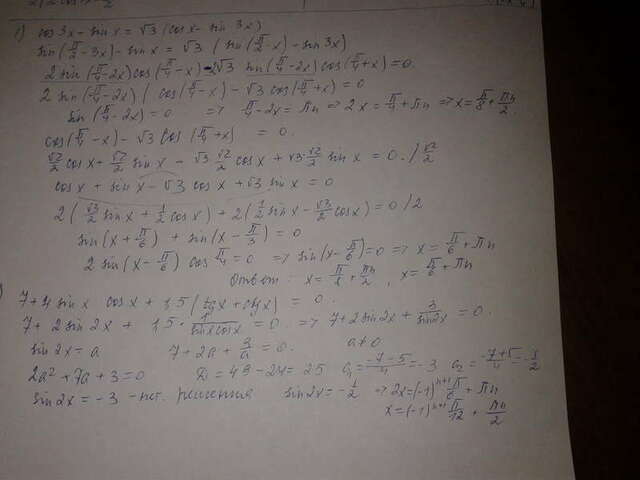 1) cos 3x - sin x = √3 (cos x - sin 3x)
sin(π/2 - 3x) - sin x = √3 (sin(π/2 - x) - sin 3x)
2 sin(π/4 - 2x) cos(π/4 - x) - 2√3 sin(π/4 - 2x) cos(π/4 + x) = 0.
2 sin(π/4 - 2x) (cos(π/4 - x) - √3 cos(π/4 + x) = 0
sin(π/4 - 2x) = 0 ⇒ π/4 - 2x = πn ⇒ 2x = π/4 + πn ⇒ x = π/8 + πn/2
cos(π/4 - x) - √3 cos(π/4 + x) = 0.
√2/2 cos x + √2/2 sin x - √3 √2/2 cos x + √3 · √2/2 sin x = 0. / √2/2
cos x + sin x - √3 cos x + √3 sin x = 0
2(√3/2 sin x + 1/2 cos x) + 2(1/2 sin x - √3/2 cos x) = 0 /2
sin(x + π/6) + sin(x - π/3) = 0
2 sin(x - π/6) cos π/4 = 0 ⇒ sin(x - π/6) = 0 ⇒ x = π/6 + πn
Ответ: x = π/8 + πn/2, x = π/6 + πn
7 + 4 sin x cos x + 1,5 (tg x + ctg x) = 0.
7 + 2 sin 2x + 1,5 · 1/sin x cos x = 0. ⇒ 7 + 2 sin 2x + 3/sin 2x = 0.
sin 2x = a 7 + 2a + 3/a = 0. a ≠ 0
2a² + 7a + 3 = 0 D = 49 - 24 = 25 a₁ = -7-5/4 = -3 a₂ = -7+5/4 = -1/2
sin 2x = -3 - нет решения sin 2x = -1/2 ⇒ 2x = (-1)ⁿ⁺¹ π/6 + πn
x = (-1)ⁿ⁺¹ π/12 + πn/2